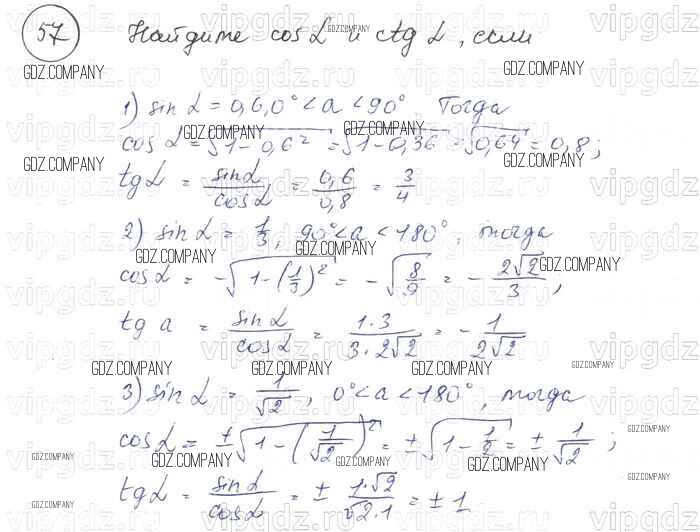 57 Найдите cos α и ctg α, если
1) sin α = 0,6, 0° < a < 90° Тогда
cos α = √1-0,6² = √1-0,36 = √0,64 = 0,8;
tg α = sin α / cos α = 0,6 / 0,8 = 3/4
2) sin α = 1/3, 90° < a < 180°, тогда
cos α = -√1-(1/3)² = -√8/9 = - 2√2/3,
tg a = sin α / cos α = 1·3 / 3·2√2 = - 1/2√2
3) sin α = 1/√2, 0° < a < 180°, тогда
cos α = ±√1-(1/√2)² = ±√1-1/2 = ± 1/√2;
tg α = sin α / cos α = ± 1·√2 / √2·1 = ± 1
GDZ.COMPANY
vipgdz.ru